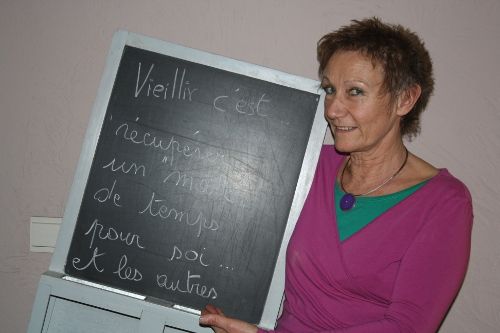 Vieillir c'est...
récupérer
un "max"
de temps
pour soi...
et les autres